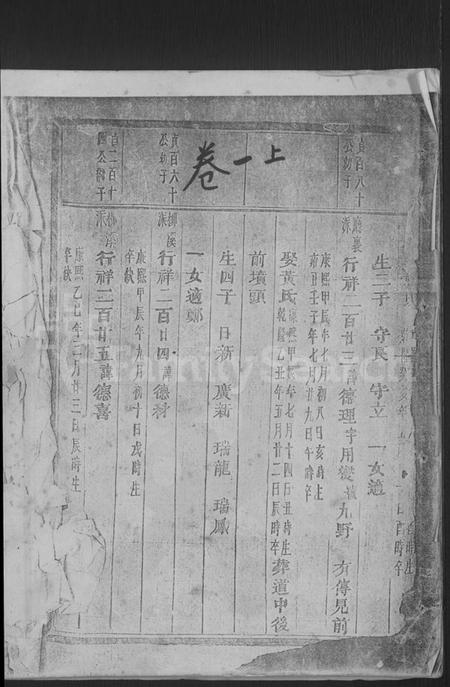 卷一上
日酉時卒
生二子 守良 守立 一女適
貞百八十
公幼子
廳裏
派
行祥二百廿三諱德理字用燮號九野 有傳見前
康熙甲辰年七月初八日亥時生
乾隆壬子年七月廿九日午時卒
娶黃氏康熙甲辰年七月十四日丑時生
乾隆乙丑年五月廿二日辰時卒
葬道中後
前墳頭
生四子 日新 廣新 瑞龍 瑞鳳
一女適鄭
貞百六十
公幼子
柳溪
派
行祥二百廿四諱德材
康熙甲辰年九月初十日戌時生
卒缺
百二百十
四公獨子
柳溪
派
行祥二百廿五諱德喜
康熙乙巳年三月廿三日辰時生
卒缺